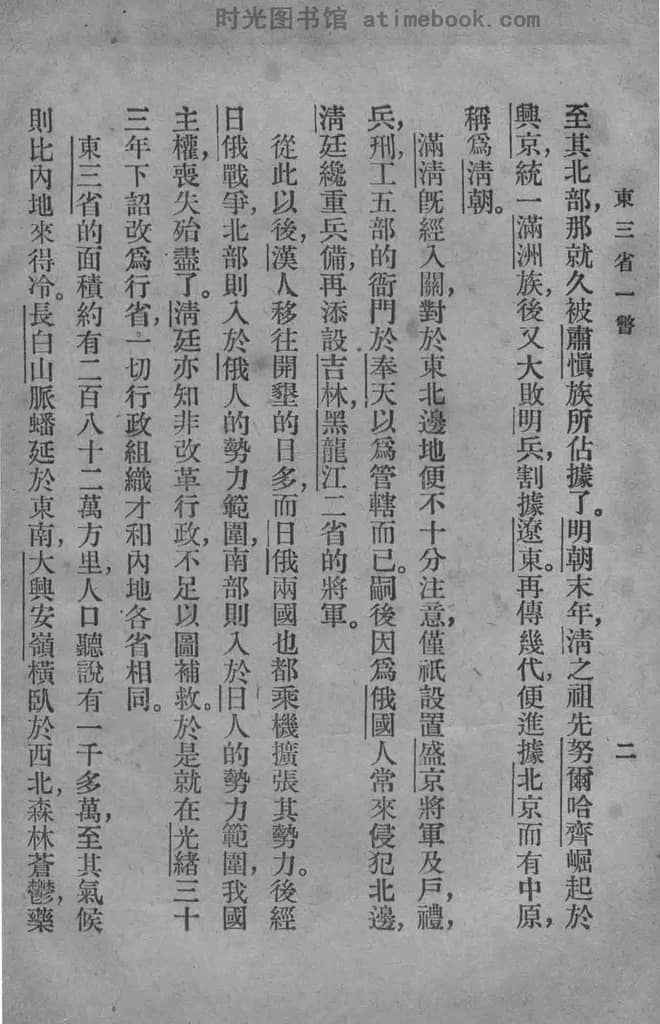 时光图书馆 atimebook.com
東三省一瞥
二
至其北部，那就久被肅愼族所佔據了。明朝末年，淸之祖先努爾哈齊崛起於
興京，統一滿洲族，後又大敗明兵，割據遼東。再傳幾代，便進據北京而有中原，
稱爲淸朝。
滿淸旣經入關，對於東北邊地便不十分注意，僅祇設置盛京將軍及戶，禮，
兵，刑，工五部的衙門於奉天以爲管轄而已。嗣後因爲俄國人常來侵犯北邊，
淸廷纔重兵備，再添設吉林，黑龍江二省的將軍。
從此以後，漢人移往開墾的日多，而日俄兩國也都乘機擴張其勢力。後經
日俄戰爭，北部則入於俄人的勢力範圍，南部則入於日人的勢力範圍，我國
主權，喪失殆盡了。淸廷亦知非改革行政，不足以圖補救。於是就在光緖三十
三年下詔改爲行省，一切行政組織才和內地各省相同。
東三省的面積約有二百八十二萬方里，人口聽說有一千多萬，至其氣候
則比內地來得冷。長白山脈蟠延於東南，大興安嶺橫臥於西北，森林蒼鬱，藥